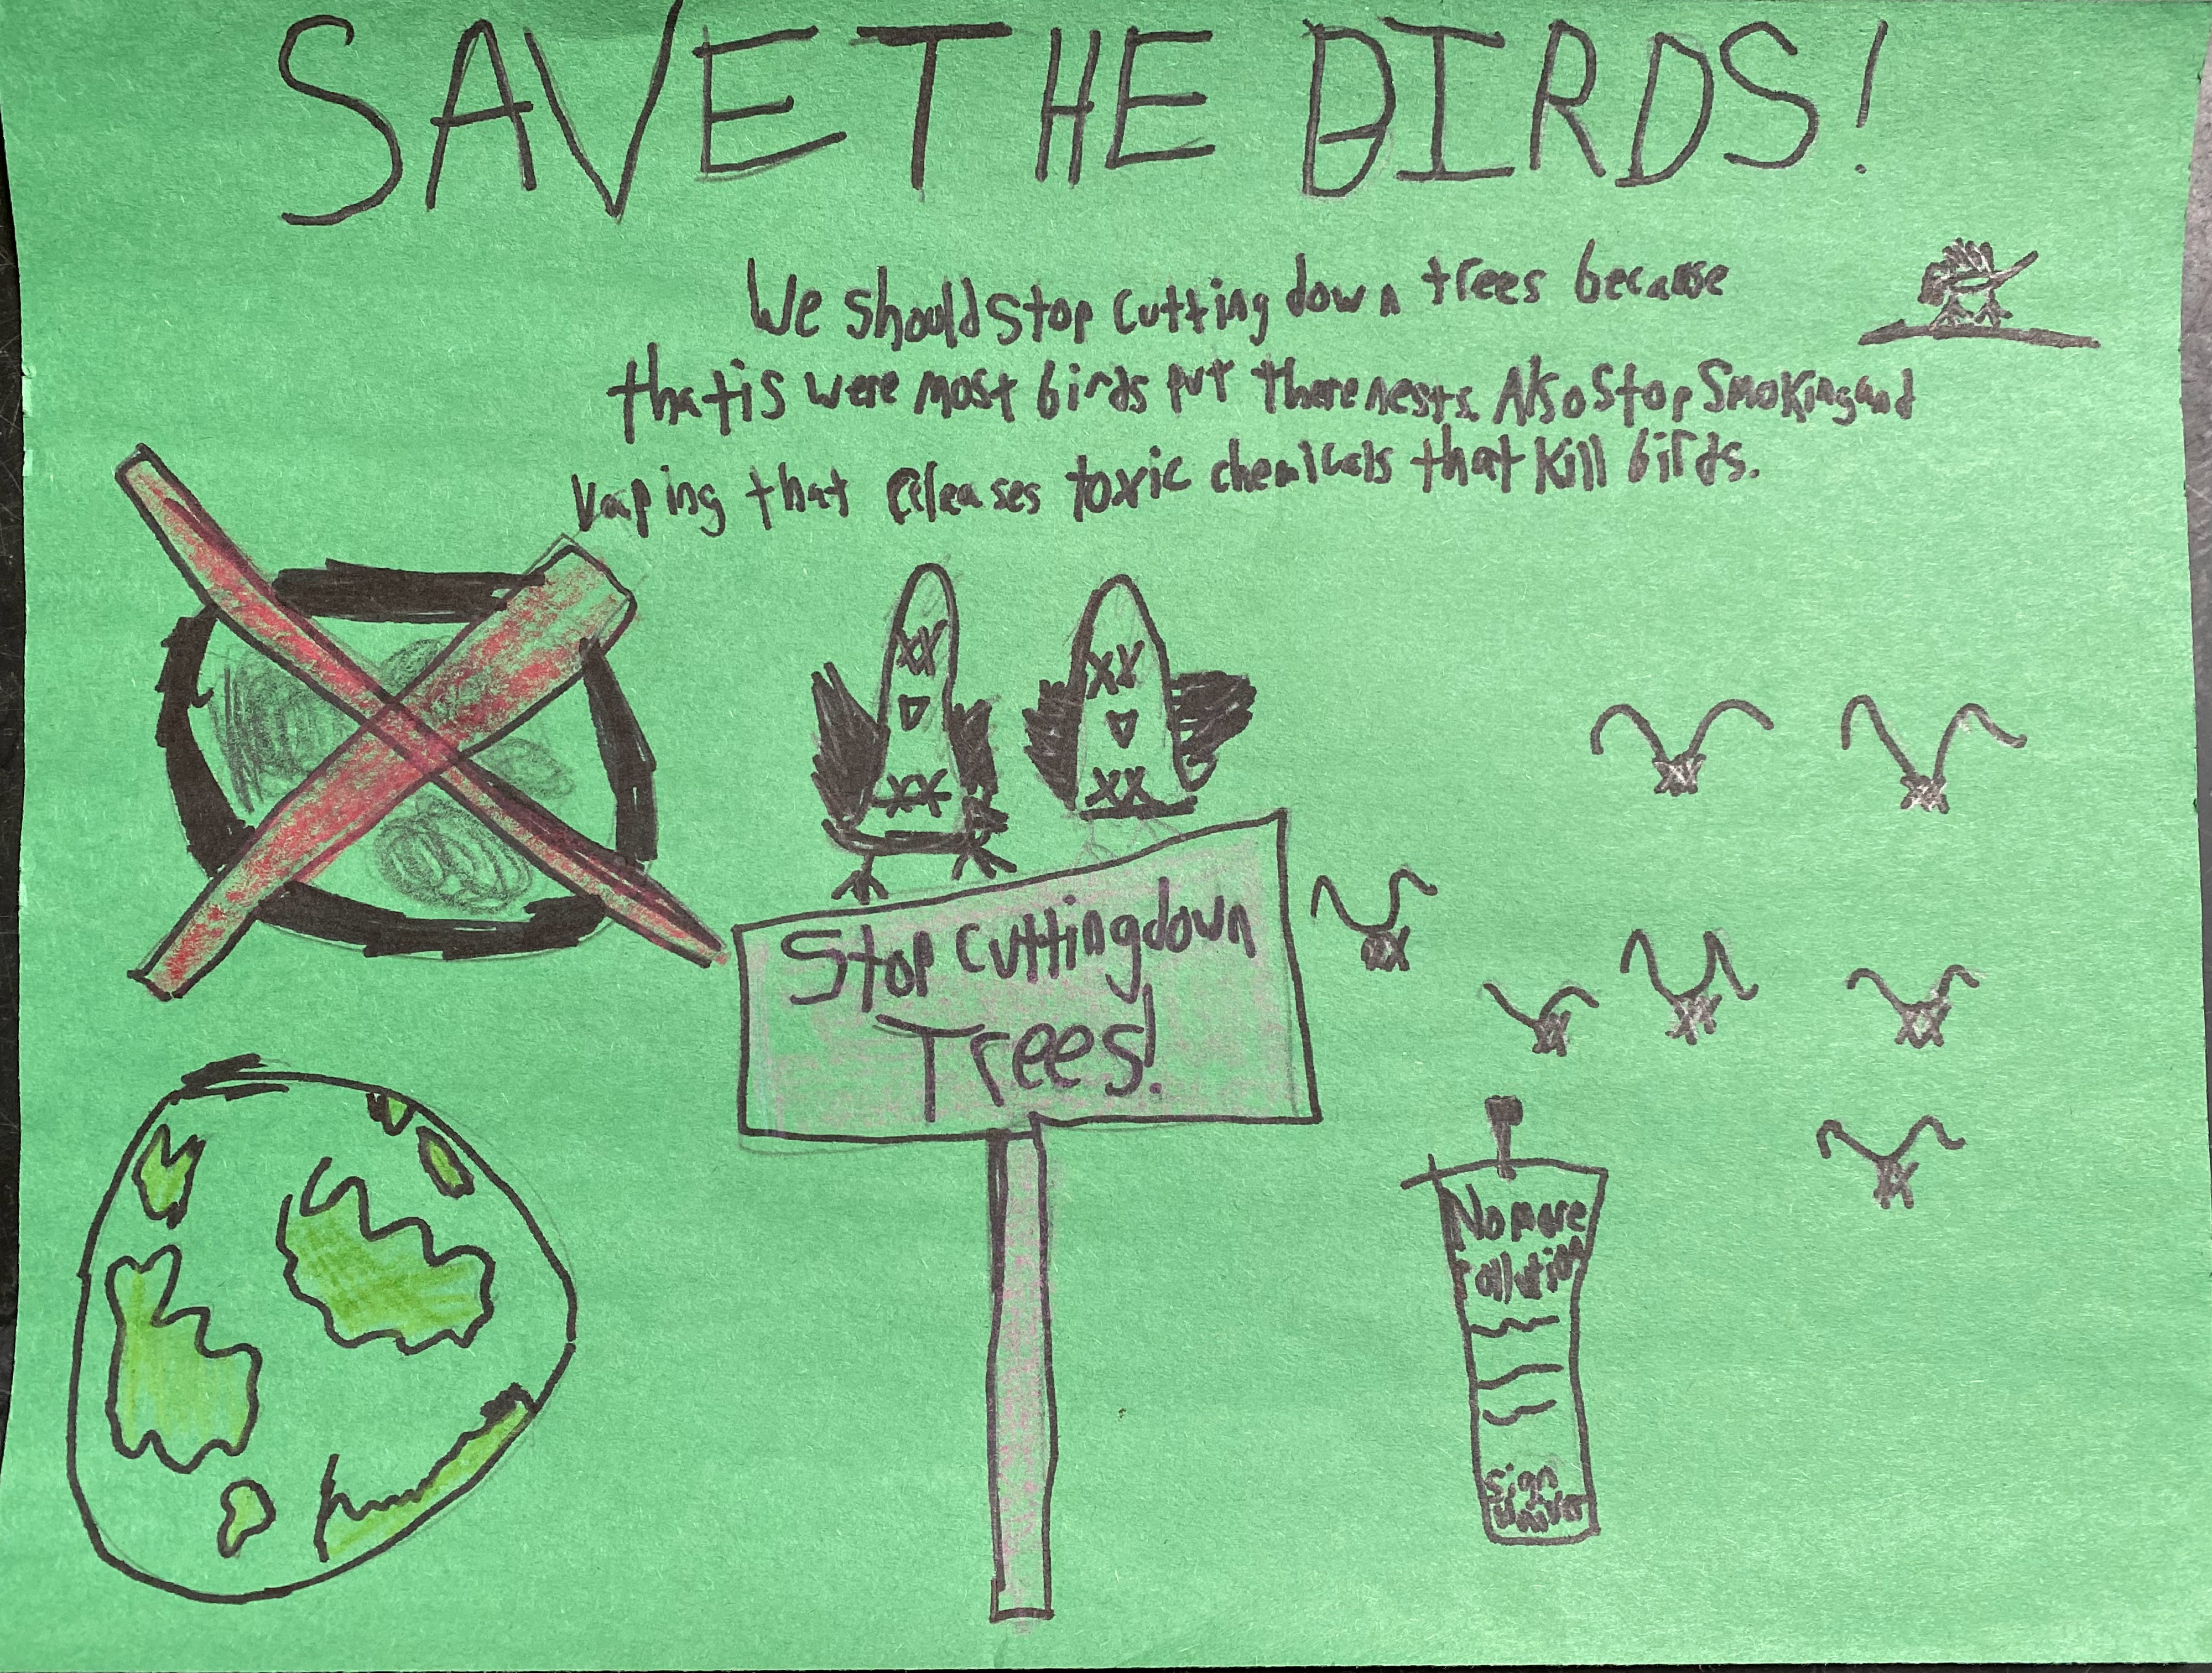 SAVE THE BIRDS!
We should stop cutting down trees because
that is were most birds put there nests. Also stop smoking and
vaping that releases toxic chemicals that kill birds.
Stop cutting down
Trees!
No more
pollution
sign
under